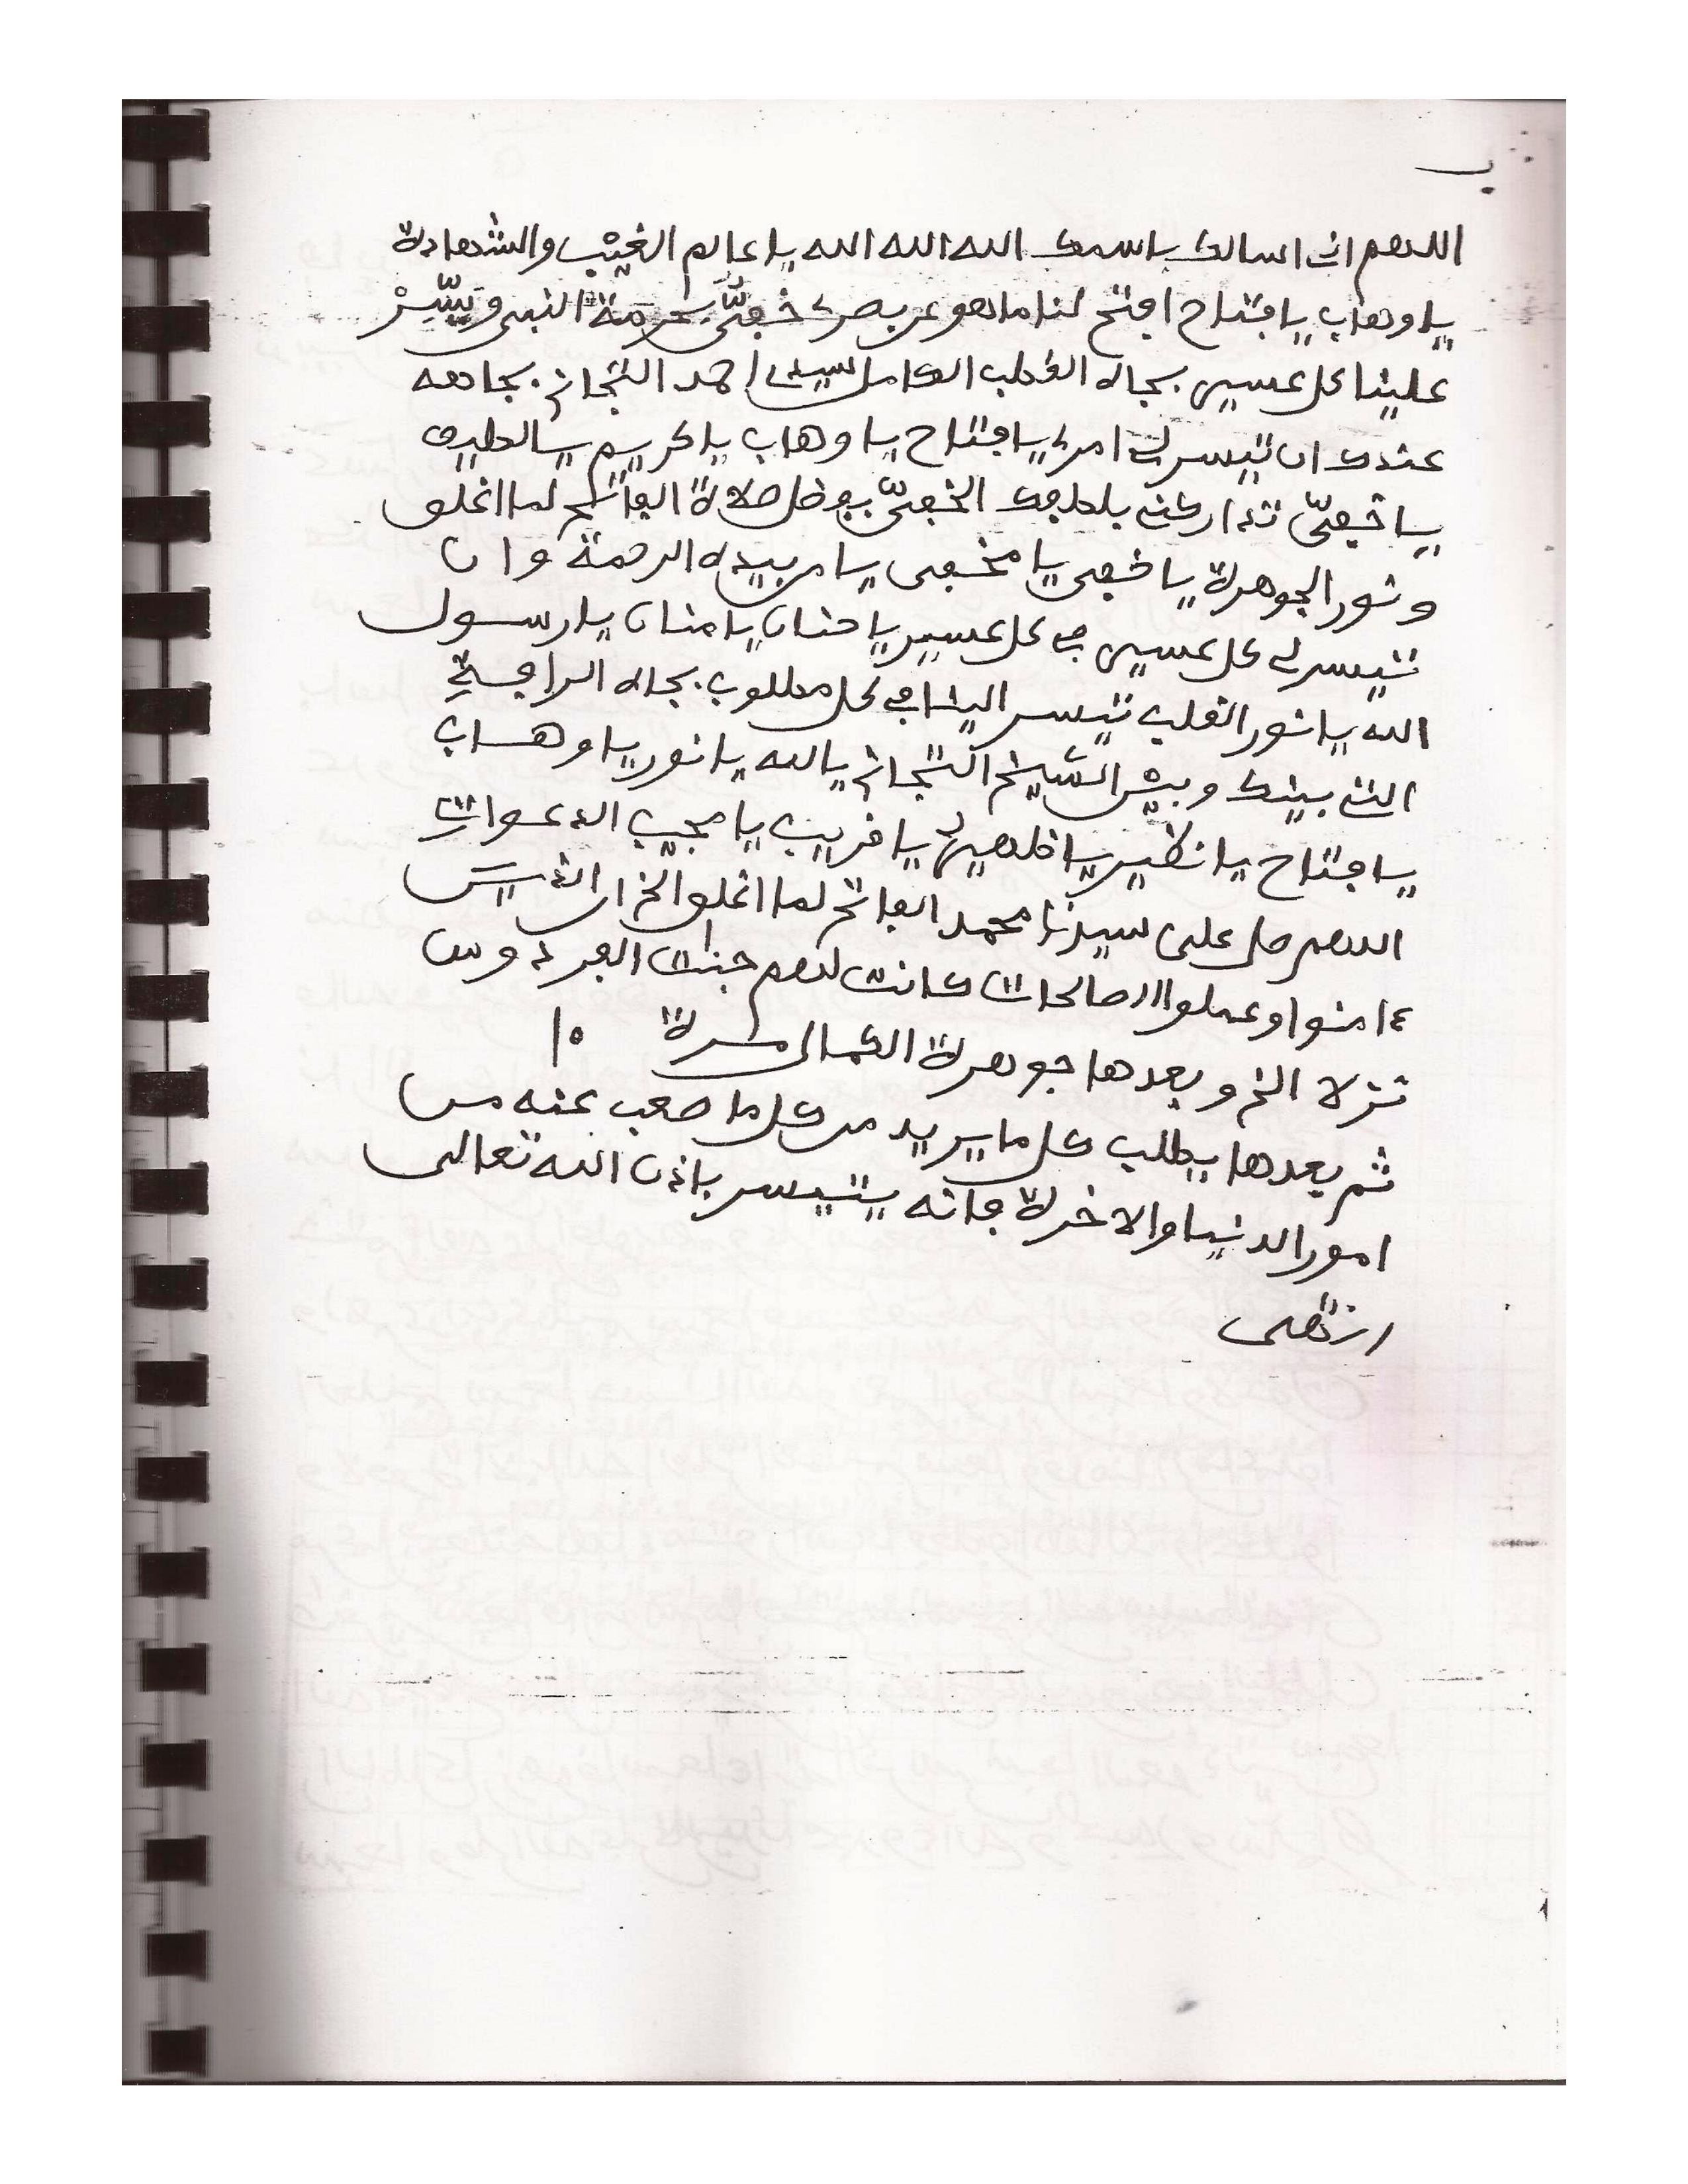 ب
اللهم انى اسالك باسمك الله الله الله يا عالم الغيب والشهادة
يا وهاب يا فتاح افتح لنا ما هو عن بصرى خفىّ بحرمة النبى ويسِّرْ
علينا كل عسير بجاه القطب الكامل سيدى احمد التجانى بجاهه
عندك ان تيسر لى امرى يا فتاح يا وهاب يا كريم يا لطيف
يا خفىّ تداركنى بلطفك الخفىّ بفضل صلاة الفاتح لما اغلق
ونور الجوهرة يا خفى يا مخفى يا من بيده الرحمة وان
تيسر لى كل عسير فى كل عسير يا حنان يا منان يا رسول
الله يا نور القلب تيسر الينا فى كل مطلوب بجاه الرابحة
التى بينك وبين الشيخ التجانى يا الله يا نور يا وهاب
يا فتاح يا نظير يا ظهير يا قريب يا مجيب الدعوات
اللهم صل على سيدنا محمد الفاتح لما اغلق الخ ان الذين
ءامنوا وعملوا الصالحات كانت لهم جنات الفردوس
نزلا الخ وبعدها جوهرة الكمال مرة ١٥
ثم بعدها يطلب كل ما يريد من كل ما صعب عنه من
امور الدنيا والاخرة فانه يتيسر باذن الله تعالى
انتهى